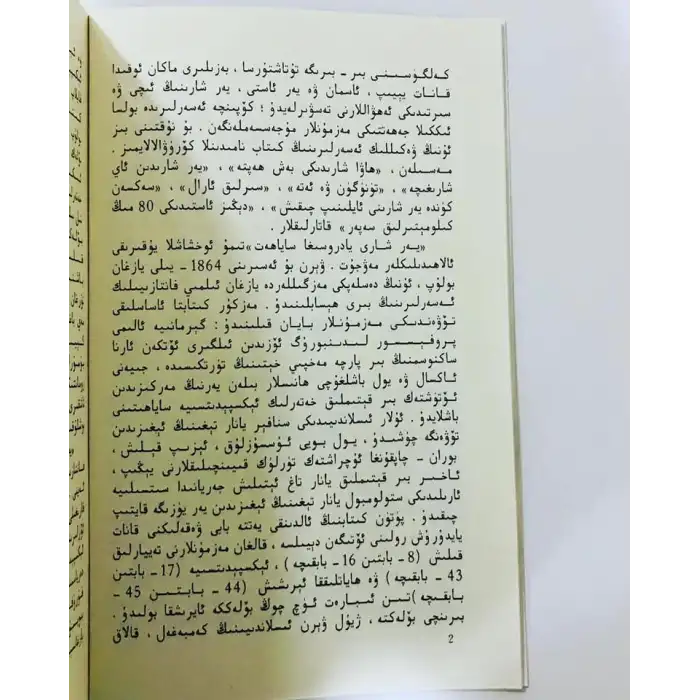 كەلگۈسىنى بىر - بىرىگە تۇتاشتۇرسا ، بەزىلىرى ماكان ئوقىدا
قانات يېيىپ ، ئاسمان ۋە يەر ئاستى ، يەر شارىنىڭ ئىچى ۋە
سىرتىدىكى ئەھۋاللارنى تەسۋىرلەيدۇ ؛ كۆپىنچە ئەسەرلىرىدە بولسا
ئىككىلا جەھەتتىكى مەزمۇنلار مۇجەسسەملەنگەن . بۇ نۇقتىنى بىز
ئۇنىڭ ۋەكىللىك ئەسەرلىرىنىڭ كىتاب نامىدىنلا كۆرۈۋالالايمىز .
مەسىلەن ، «ھاۋا شارىدىكى بەش ھەپتە» ، «يەر شارىدىن ئاي
شارىغىچە» ، «تۈنۈگۈن ۋە ئەتە» ، «سىرلىق ئارال» ، «سەكسەن
كۈندە يەر شارىنى ئايلىنىپ چىقىش» ، «دېڭىز ئاستىدىكى 80 مىڭ
كىلومېتىرلىق سەپەر» قاتارلىقلار .
«يەر شارى يادروسىغا ساياھەت» تىمۇ ئوخشاشلا يۇقىرىقى
ئالاھىدىلىكلەر مەۋجۇت . ۋېرن بۇ ئەسىرىنى 1864 - يىلى يازغان
بولۇپ ، ئۇنىڭ دەسلەپكى مەزگىللەردە يازغان ئىلمىي فانتازىيىلىك
ئەسەرلىرىنىڭ بىرى ھېسابلىنىدۇ . مەزكۇر كىتابتا ئاساسلىقى
تۆۋەندىكى مەزمۇنلار بايان قىلىنىدۇ : گېرمانىيە ئالىمى
پروفېسسور لىدىنبورۇگ ئۆزىدىن ئىلگىرى ئۆتكەن ئارنا
ساكنۇسمنىڭ بىر پارچە مەخپىي خېتىنىڭ تۈرتكىسىدە ، جىيەنى
ئاكسال ۋە يول باشلىغۇچى ھانىسلار بىلەن يەرنىڭ مەركىزىدىن
ئۆتۈشتەك بىر قېتىملىق خەتەرلىك ئېكسپېدىتسىيە ساياھىتىنى
باشلايدۇ . ئۇلار ئىسلاندىيىدىكى سنافېر يانار تېغىنىڭ ئېغىزىدىن
تۆۋەنگە چۈشىدۇ ، يول بويى ئۇسسۇزلۇق ، ئېزىپ قېلىش ،
بوران - چاپقۇنغا ئۇچراشتەك تۈرلۈك قىيىنچىلىقلارنى يېڭىپ ،
ئاخىر بىر قېتىملىق يانار تاغ ئېتىلىش جەريانىدا سىتسىلىيە
ئارىلىدىكى ستولومبول يانار تېغىنىڭ ئېغىزىدىن يەر يۈزىگە قايتىپ
چىقىدۇ . پۈتۈن كىتابنىڭ ئالدىنقى يەتتە بابى ۋەقەلىكنى قانات
يايدۇرۇش رولىنى ئۆتىگەن دېيىلسە ، قالغان مەزمۇنلارنى تەييارلىق
قىلىش (8 - بابتىن 16 - بابقىچە) ، ئېكسپېدىتسىيە (17 - بابتىن
43 - بابقىچە) ۋە ھاياتلىققا ئېرىشىش (44 - بابتىن 45 -
بابقىچە) تىن ئىبارەت ئۈچ چوڭ بۆلەككە ئايرىشقا بولىدۇ .
بىرىنچى بۆلەكتە ، ژيۇل ۋېرن ئىسلاندىيىنىڭ كەمبەغەل ، قالاق
2